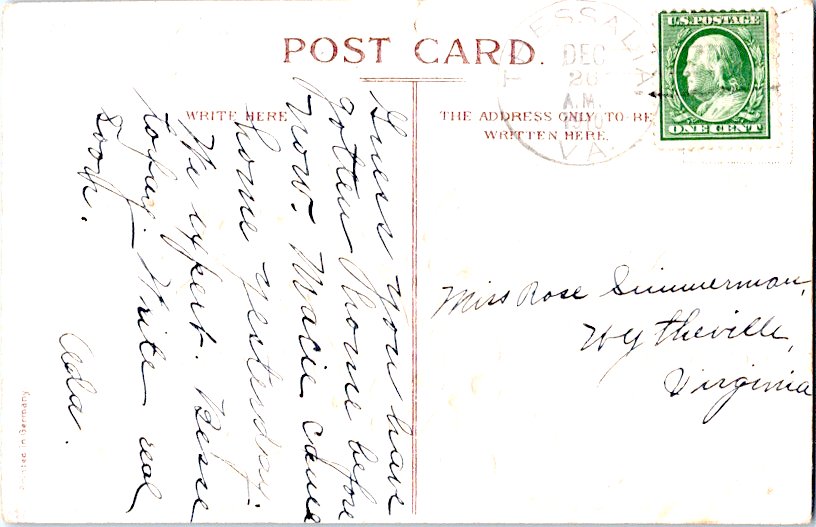 POST CARD.
WRITE HERE
THE ADDRESS ONLY TO BE
WRITTEN HERE.
DEC
20
A.M.
VA
U.S. POSTAGE
ONE CENT
Guess you have
gotten home before
now. Macie came
home yesterday.
We expect Bessie
today. Write real
soon.
Ada.
Miss Rose Simmerman,
Wytheville,
Virginia
Printed in Germany